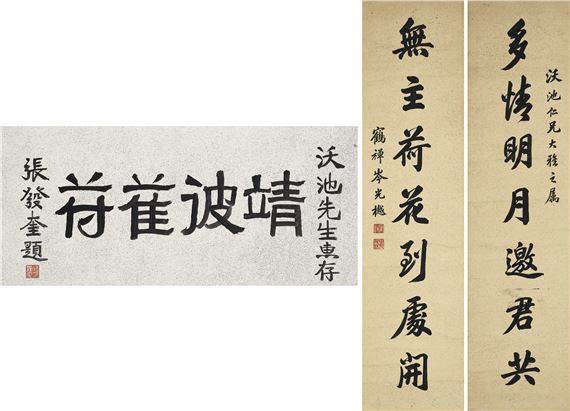 沃池先生惠存
靖彼萑苻
張發奎題
沃池仁兄大雅之属
多情明月邀君共
無主荷花到處開
鶴禪岑光樾